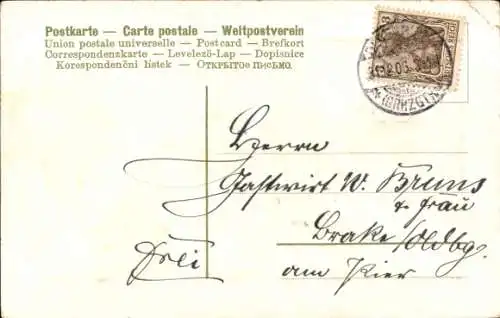 Postkarte — Carte postale — Weltpostverein
Union postale universelle — Postcard — Brefkort
Correspondenzkarte — Levelező-Lap — Dopisnice
Korespondenční listek — Открытое письмо.
Herrn
Gastwirt W. Bruns
u. Frau
Brake/Oldbg.
am Pier
Drei